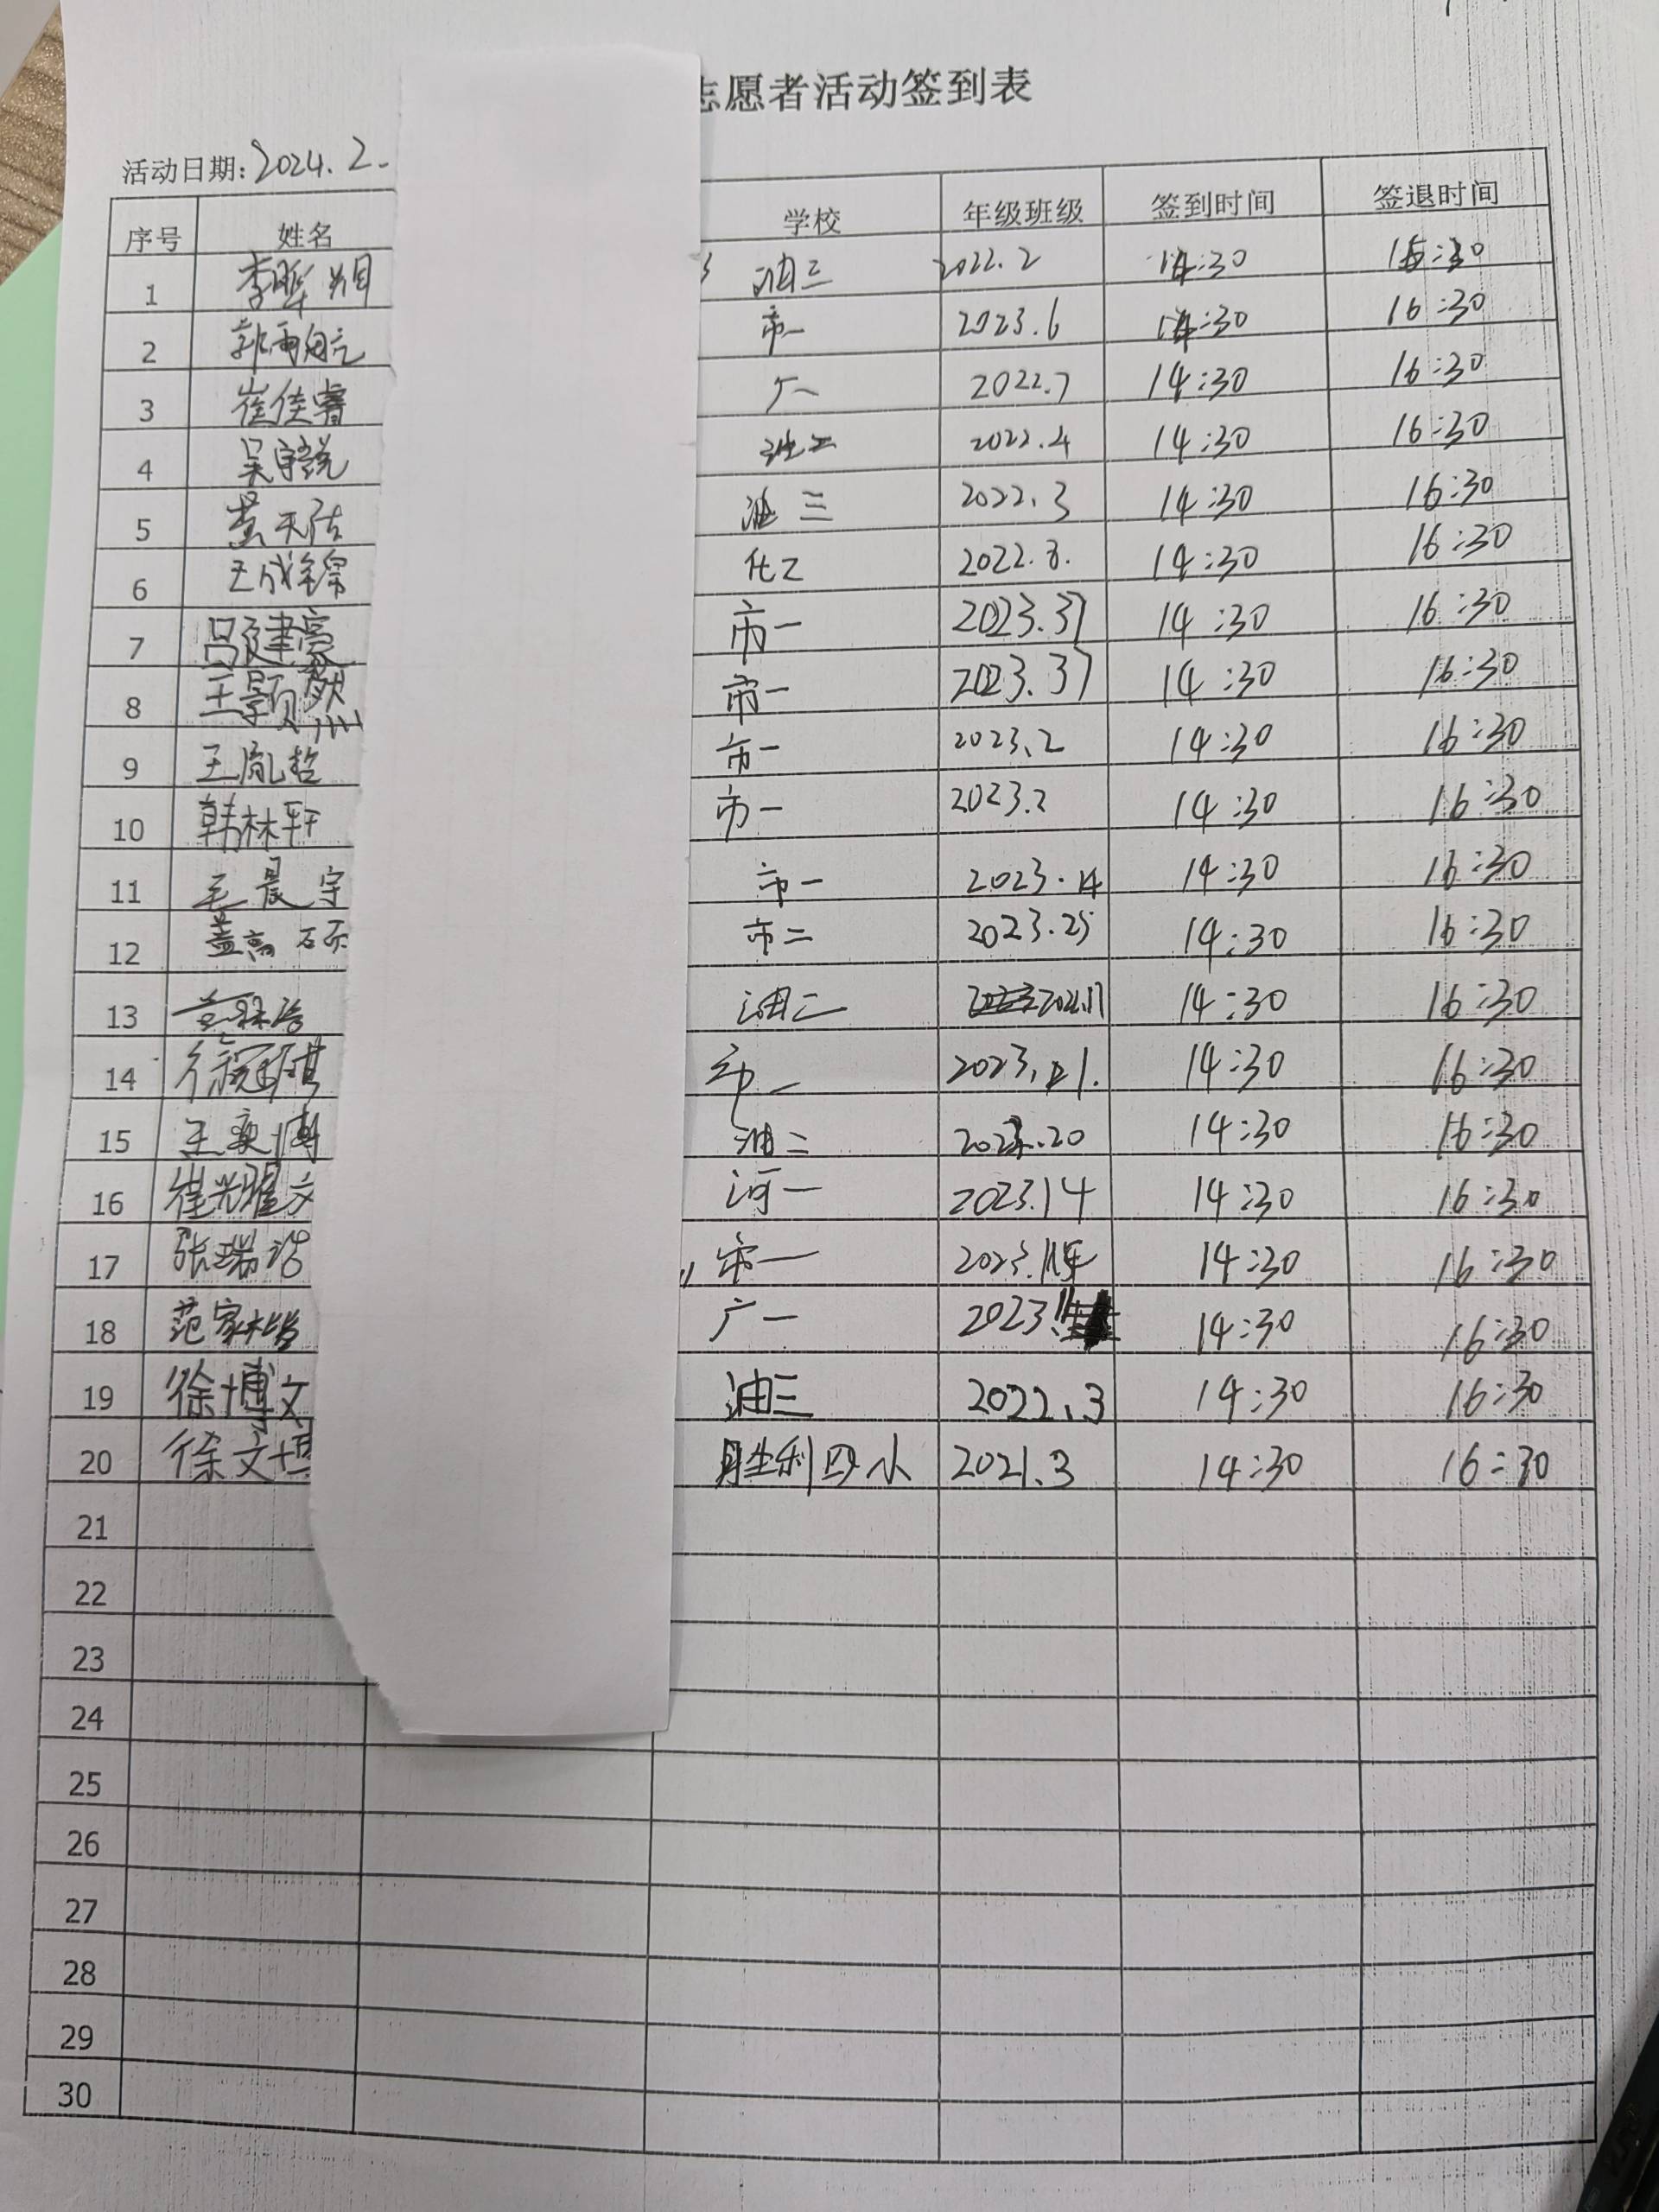 志愿者活动签到表
活动日期:2024.2.
序号 姓名 学校 年级班级 签到时间 签退时间
1 李 油三 2022.2 14:30 16:30
2 郭雨航 市一 2023.6 14:30 16:30
3 崔佳睿 广一 2022.7 14:30 16:30
4 吴宇锐 油二 2022.4 14:30 16:30
5 黄天佑 油三 2022.3 14:30 16:30
6 王成锦 化工 2022.8. 14:30 16:30
7 吕建豪 市一 2023.37 14:30 16:30
8 王颢燃 市一 2023.37 14:30 16:30
9 王胤哲 市一 2023.2 14:30 16:30
10 韩林轩 市一 2023.2 14:30 16:30
11 王晨宇 市一 2023.14 14:30 16:30
12 盖高硕 市二 2023.25 14:30 16:30
13 油二 14:30 16:30
14 徐冠琪 市一 2023.21. 14:30 16:30
15 王奕博 油二 14:30 16:30
16 崔光耀文 河一 2023.14 14:30 16:30
17 张瑞浩 市一 14:30 16:30
18 范家楷 广一 2023.11 14:30 16:30
19 徐博文 油三 2022.3 14:30 16:30
20 徐文博 胜利四小 2021.3 14:30 16:30
21
22
23
24
25
26
27
28
29
30